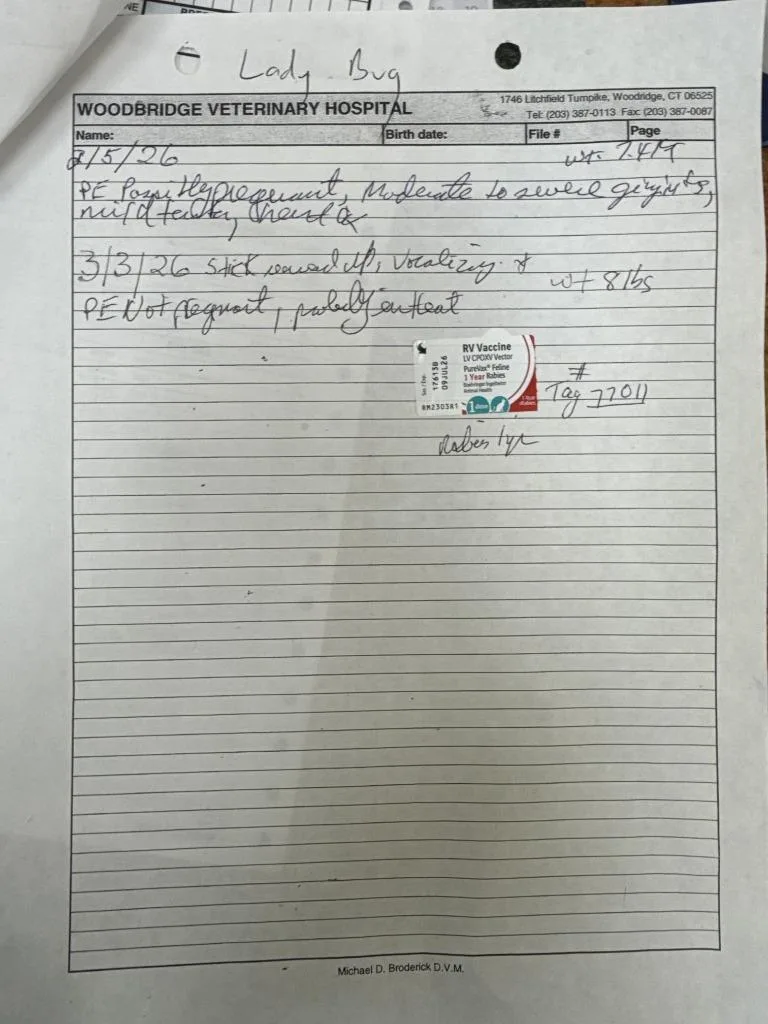 Lady Bug
WOODBRIDGE VETERINARY HOSPITAL
1746 Litchfield Turnpike, Woodridge, CT 06525
Tel: (203) 387-0113 Fax: (203) 387-0087
Name: Birth date: File # Page
2/5/26 wt. 7.4
PE Possibly pregnant, Moderate to severe gingivitis,
mild tartar, heart
3/3/26 Stick , Vocalizing wt 8 lbs
PE Not pregnant, probably in Heat
RV Vaccine
LV CPOXV Vector
PureVax® Feline
1 Year Rabies
Boehringer Ingelheim
Animal Health
17613B
09JUL26
1 dose
# Tag 77011
Rabies 1yr
Michael D. Broderick D.V.M.